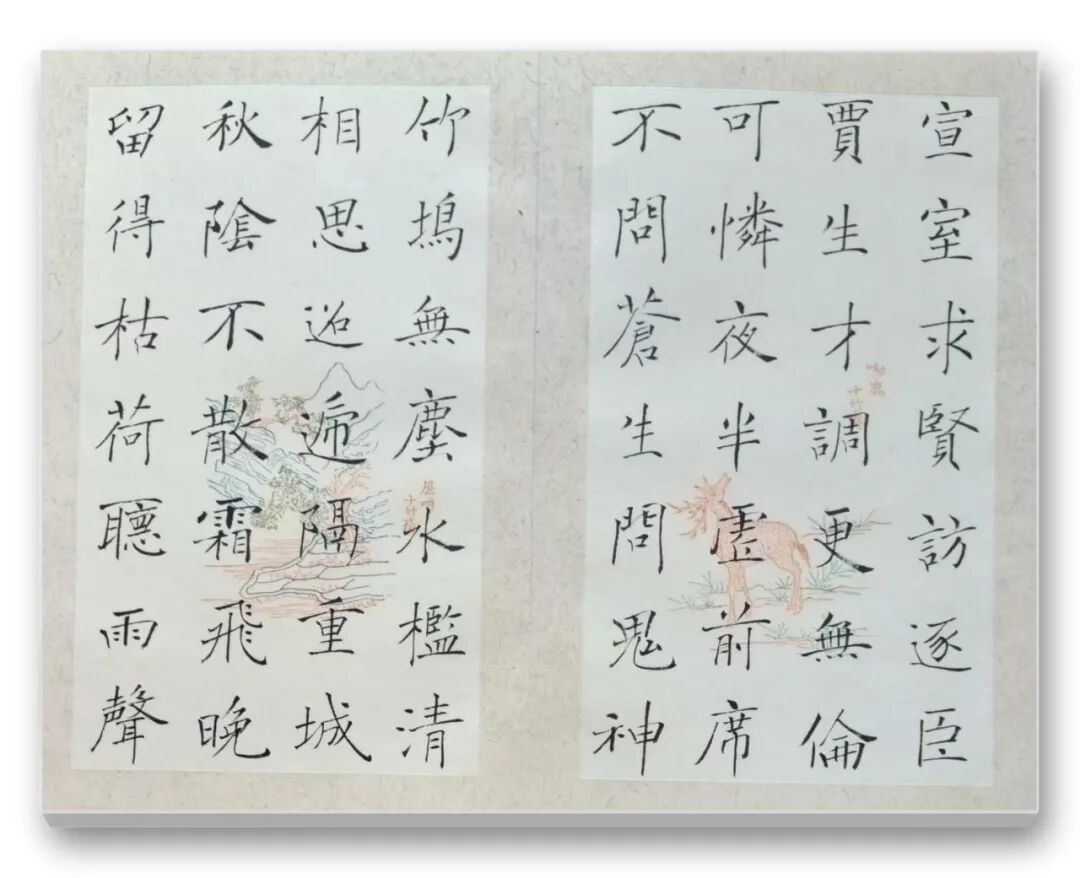 宣室求賢訪逐臣
賈生才調更無倫
可憐夜半虛前席
不問蒼生問鬼神
竹塢無塵水檻清
相思迢遞隔重城
秋陰不散霜飛晚
留得枯荷聽雨聲